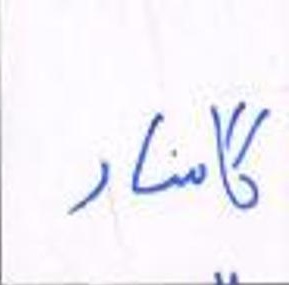 کامنار